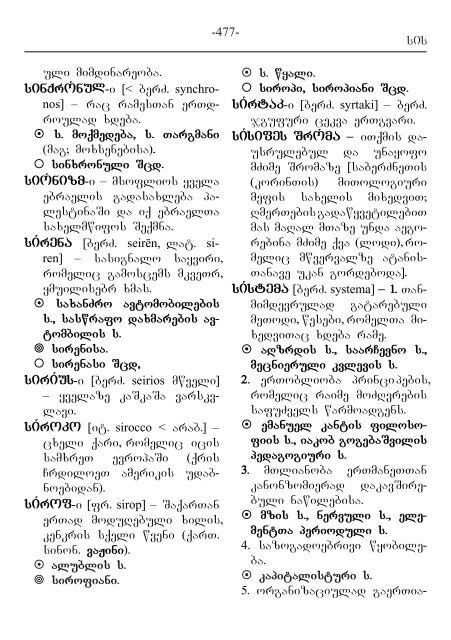 -477-
სის
ული მიმდინარეობა.
სინქრონულ-ი [< ბერძ. synchro-
nos] – რაც რამესთან ერთდ-
როულად ხდება.
⦿ ს. მოქმედება, ს. თარგმანი
(მაგ; მოხსენებისა).
○ სინხრონული შცდ.
სიონიზმ-ი – მსოფლიოს ყველა
ებრაელის გადასახლება პა-
ლესტინაში და იქ ებრაელთა
სახელმწიფოს შექმნა.
სირენა [ბერძ. seirēn, ლატ. si-
ren] – სასიგნალო საყვირი,
რომელიც გამოსცემს მკვეთრ,
ყმუილისებრ ხმას.
⦿ სახანძრო ავტომობილების
ს., სასწრაფო დახმარების ავ-
ტომბილის ს.
◎ სირენისა.
○ სირენასი შცდ,
სირიუს-ი [ბერძ. seirios მწველი]
– ყველაზე კაშკაშა ვარსკვ-
ლავი.
სიროკო [იტ. sirocco < არაბ.] –
ცხელი ქარი, რომელიც იცის
სამხრეთ ევროპაში (ქრის
ჩრდილოეთ ამერიკის უდაბ-
ნოებიდან).
სიროფ-ი [ფრ. sirop] – შაქართან
ერთად მოდუღებული ხილის,
კენკრის სქელი წვენი (ქართ.
სინონ. ვაჟინი).
⦿ ალუბლის ს.
◎ სიროფიანი.
⦿ ს. წყალი.
○ სიროპი, სიროპიანი შცდ.
სირტაკ-ი [ბერძ. syrtaki] – ბერძ.
ჯგუფური ცეკვა ერთგვარი.
სისიფეს შრომა – ითქმის და-
უსრულებულ და უნაყოფო
მძიმე შრომაზე [საბერძნეთის
(კორინთის) მითოლოგიური
მეფის სახელის მიხედვით;
ღმერთების გადაწყვეტილებით
მას მაღალ მთაზე უნდა აეგო-
რებინა მძიმე ქვა (ლოდი), რო-
მელიც მწვერვალზე ატანის-
თანავე უკან გორდებოდა].
სისტემა [ბერძ. systema] – 1. თან-
მიმდევრულად გატარებული
მეთოდი, წესები, რომელთა მი-
ხედვითაც ხდება რამე.
⦿ აღზრდის ს., საარჩევნო ს.,
მეცნიერული კვლევის ს.
2. ერთობლიობა პრინციპების,
რომელიც რაიმე მოძღვრების
საფუძველს წარმოადგენს.
⦿ ემანუელ კანტის ფილოსო-
ფიის ს., იაკობ გოგებაშვილის
პედაგოგიური ს.
3. მთლიანობა ერთმანეთთან
კანონზომიერად დაკავშირე-
ბული ნაწილებისა.
⦿ მზის ს., ნერვული ს., ელე-
მენტთა პერიოდული ს.
4. საზოგადოებრივი წყობილე-
ბა.
⦿ კაპიტალისტური ს.
5. ორგანიზაციულად გაერთია-